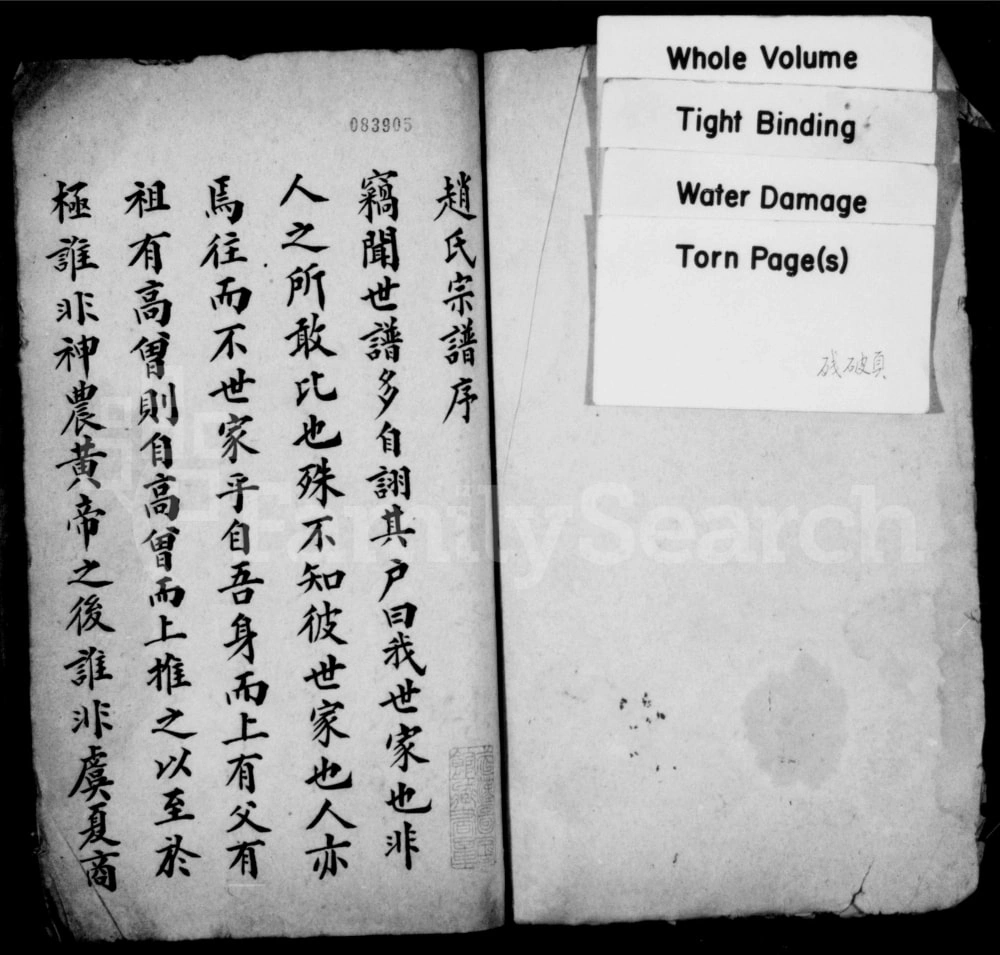 Whole Volume
Tight Binding
Water Damage
Torn Page(s)
残破頁
083905
趙氏宗譜序
竊聞世譜多自詡其户曰我世家也非
人之所敢比也殊不知彼世家也人亦
焉往而不世家乎自吾身而上有父有
祖有高曾則自高曾而上推之以至於
極誰非神農黃帝之後誰非虞夏商
FamilySearch